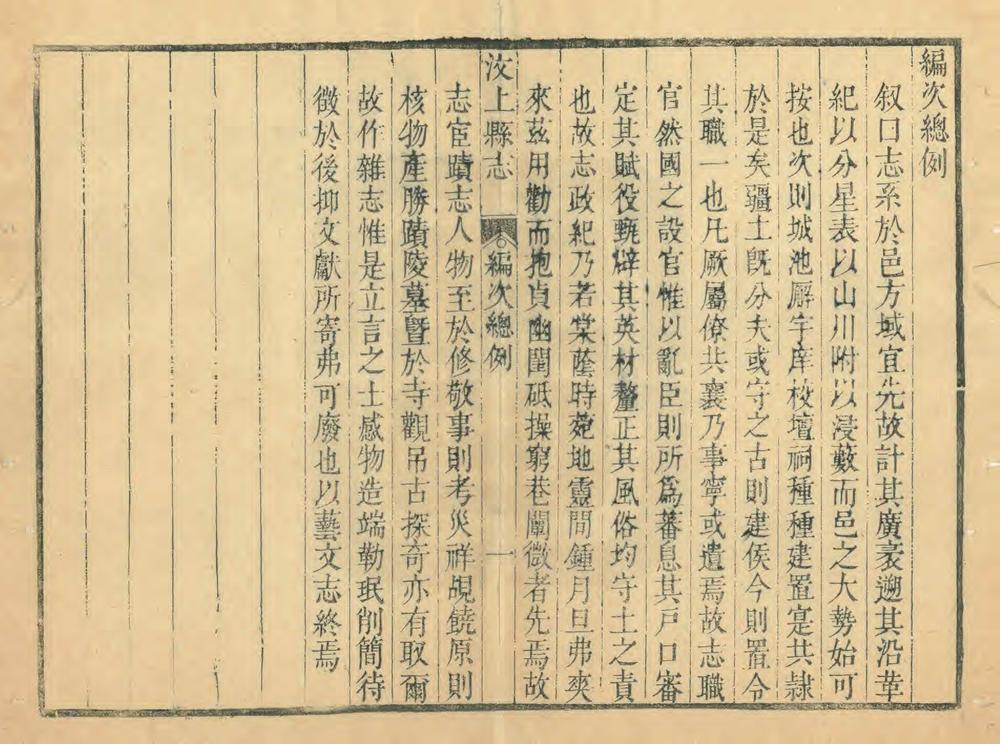 編次總例
叙曰志系於邑方域宜先故計其廣袤遡其沿革
紀以分星表以山川附以浸藪而邑之大勢始可
按也次則城池廨宇庠校壇祠種種建置寔共隷
於是矣疆土旣分夫或守之古則建侯今則置令
其職一也凡厥屬僚共襄乃事寧或遺焉故志職
官然國之設官惟以亂臣則所爲蕃息其戸口審
定其賦役甄辟其英材釐正其風俗均守土之責
也故志政紀乃若棠蔭時菀地靈間鍾月旦弗爽
來茲用勸而抱貞幽閨砥操窮巷闡微者先焉故
汶上縣志
編次總例
一
志宦蹟志人物至於修敬事則考災祥覘饒原則
核物產勝蹟陵墓曁於寺觀吊古探奇亦有取爾
故作雜志惟是立言之士感物造端勒珉削簡待
徵於後抑文獻所寄弗可廢也以藝文志終焉